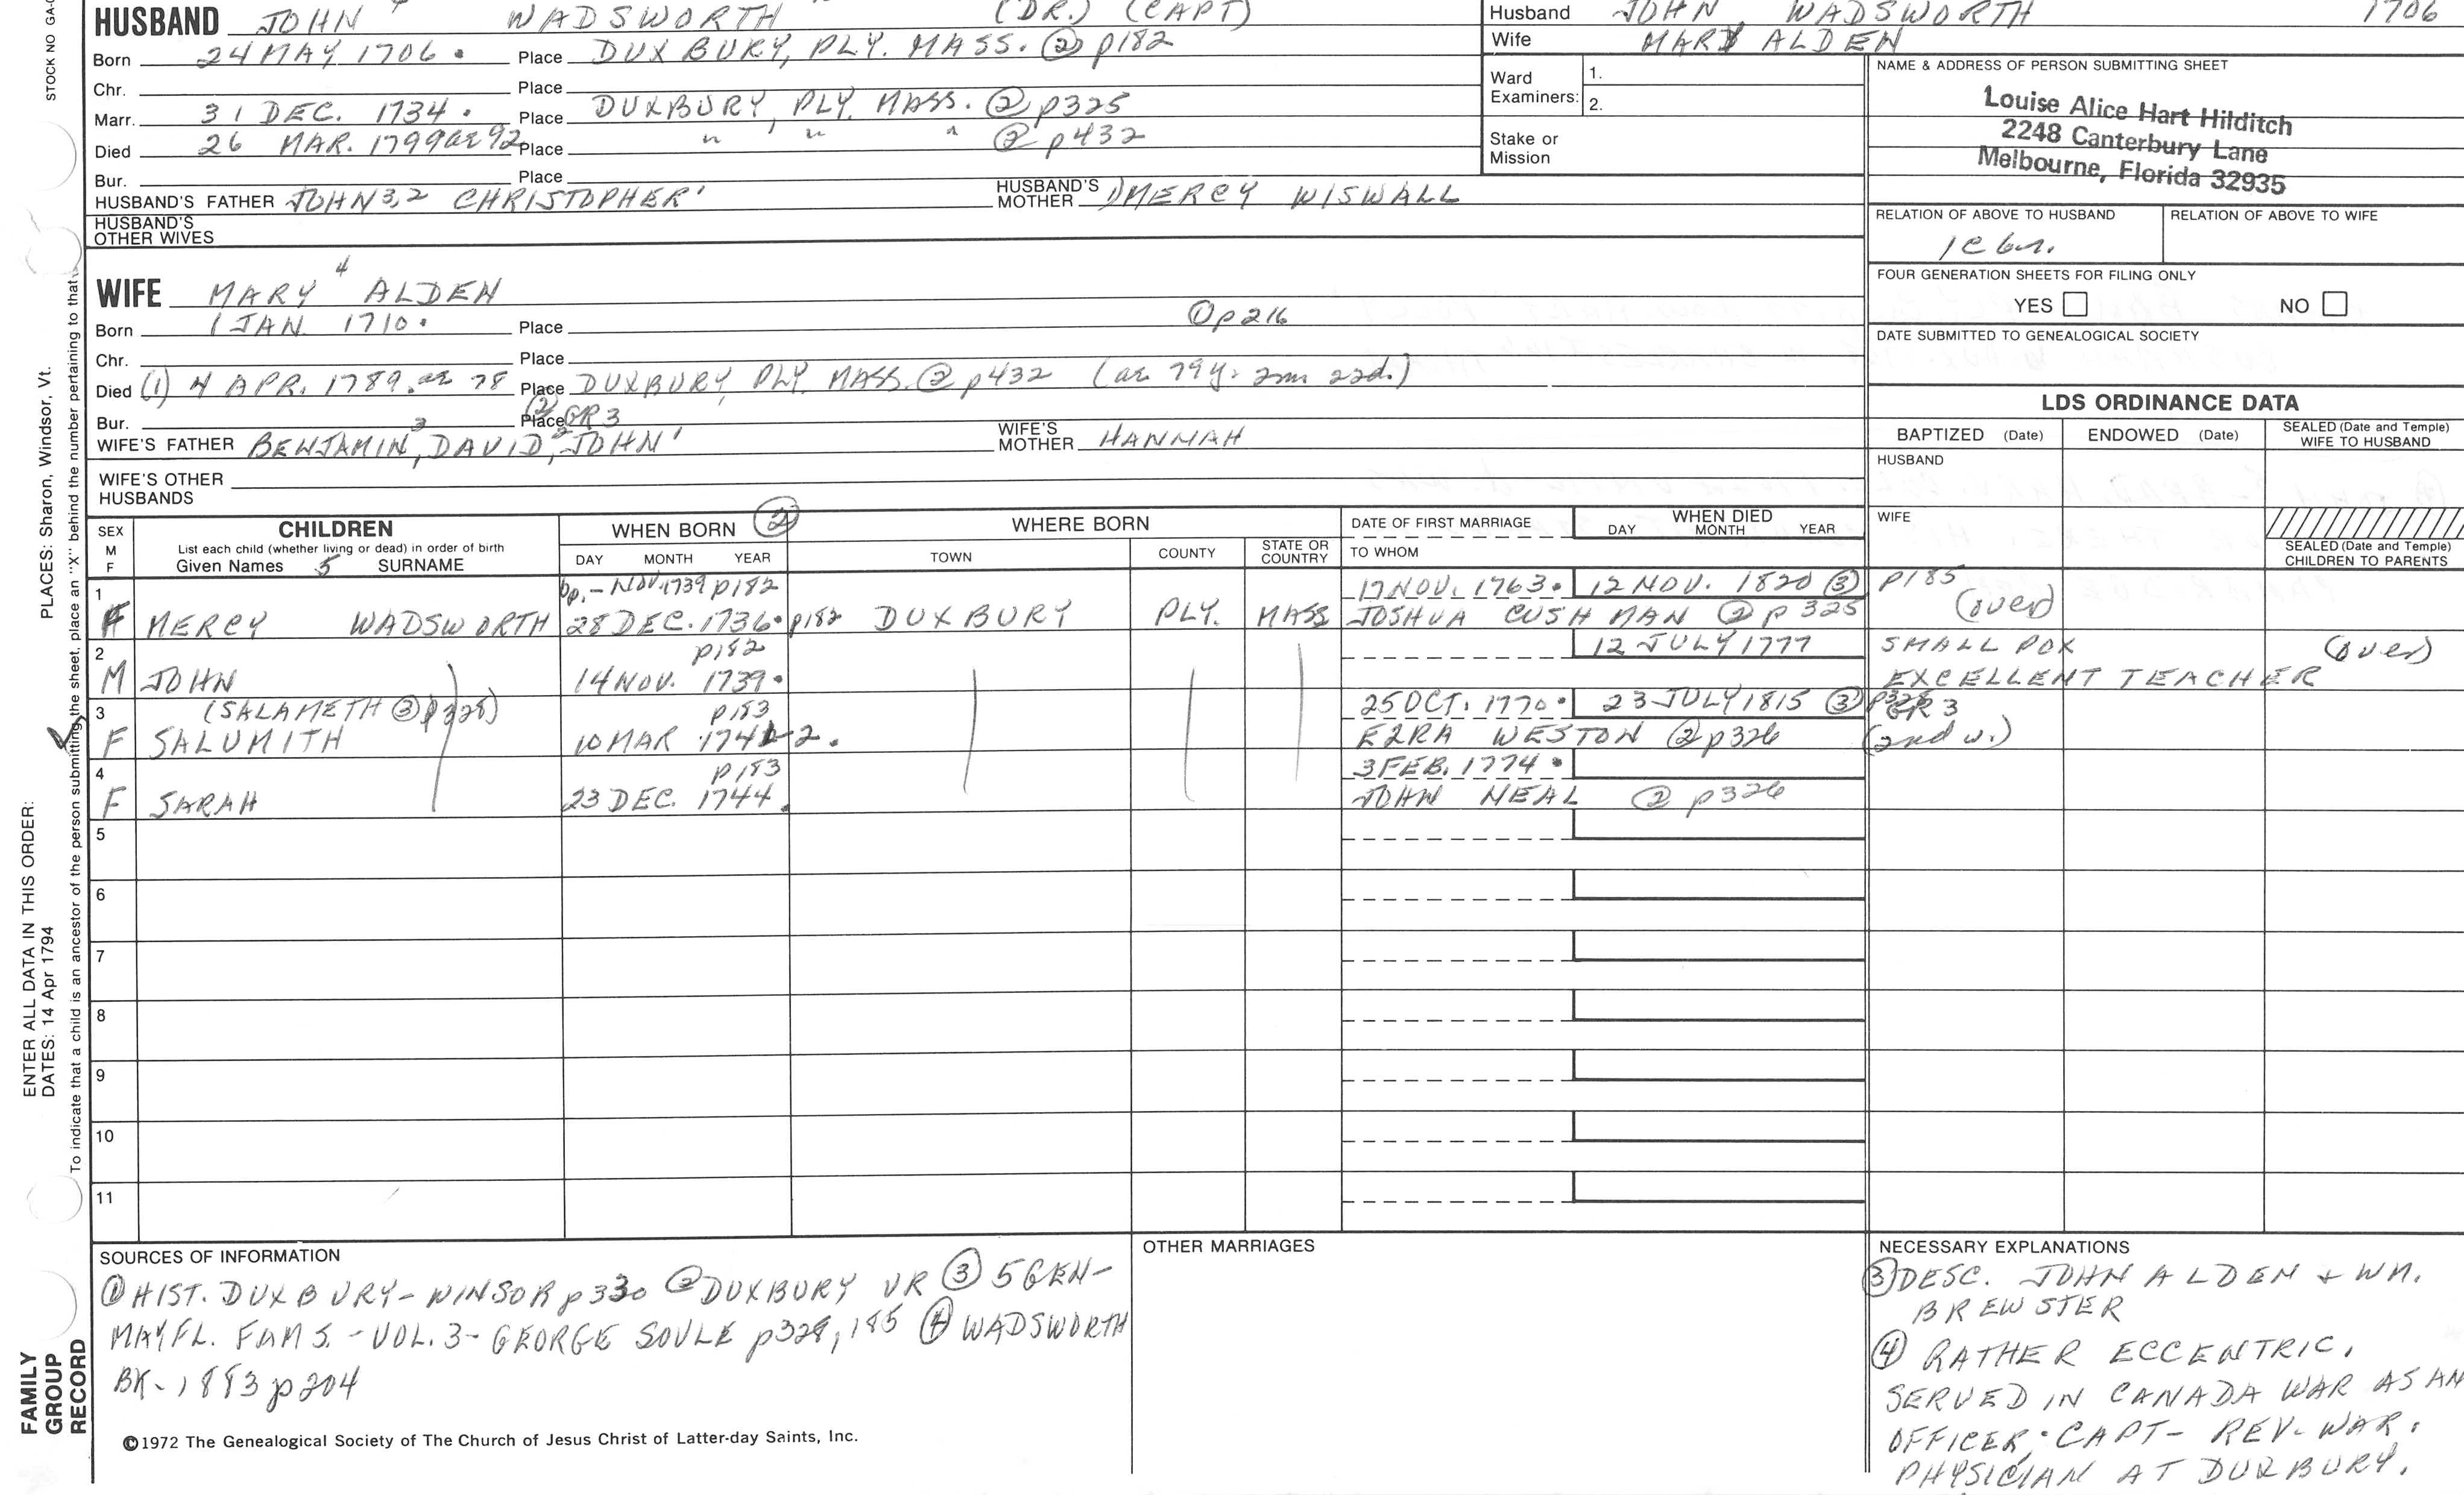 STOCK NO GA-
HUSBAND JOHN 4 WADSWORTH (DR.) (CAPT)
Born 24 MAY 1706. Place DUXBURY, PLY. MASS. ② p182
Chr. Place
Marr. 31 DEC. 1734. Place DUXBURY, PLY. MASS. ② p325
Died 26 MAR. 1799 ae 92 Place " " " ② p432
Bur. Place
HUSBAND'S FATHER JOHN 3,2 CHRISTOPHER 1 HUSBAND'S MOTHER MERCY WISWALL
HUSBAND'S OTHER WIVES
Husband JOHN WADSWORTH 1706
Wife MARY ALDEN
Ward Examiners: 1.
2.
Stake or Mission
NAME & ADDRESS OF PERSON SUBMITTING SHEET
Louise Alice Hart Hilditch
2248 Canterbury Lane
Melbourne, Florida 32935
RELATION OF ABOVE TO HUSBAND RELATION OF ABOVE TO WIFE
FOUR GENERATION SHEETS FOR FILING ONLY
YES NO
DATE SUBMITTED TO GENEALOGICAL SOCIETY
WIFE MARY 4 ALDEN
Born 1 JAN. 1710. Place ① p216
Chr. Place
Died (1) 4 APR. 1789. ae 78 Place DUXBURY, PLY. MASS. ② p432 (ae 79y. 2m 22d.)
Bur. Place (2) GR3
WIFE'S FATHER BENJAMIN 3, DAVID 2, JOHN 1 WIFE'S MOTHER HANNAH
WIFE'S OTHER HUSBANDS
LDS ORDINANCE DATA
BAPTIZED (Date) ENDOWED (Date) SEALED (Date and Temple) WIFE TO HUSBAND
HUSBAND
WIFE
SEALED (Date and Temple) CHILDREN TO PARENTS
SEX M F CHILDREN WHEN BORN ② WHERE BORN DATE OF FIRST MARRIAGE WHEN DIED
List each child (whether living or dead) in order of birth
Given Names 5 SURNAME DAY MONTH YEAR TOWN COUNTY STATE OR COUNTRY TO WHOM DAY MONTH YEAR
1 bp.- NOV. 1739 p182 17 NOV. 1763. 12 NOV. 1820 ③ p185
F MERCY WADSWORTH 28 DEC. 1736. p182 DUXBURY PLY. MASS JOSHUA CUSHMAN ② p325 (over)
2 p182 12 JULY 1777 SMALL POX (over)
M JOHN 14 NOV. 1739. EXCELLENT TEACHER
3 (SALAMETH ③ p328) p183 25 OCT. 1770. 23 JULY 1815 ③ p328 GR3
F SALUMITH 10 MAR 1741-2. EZRA WESTON ② p326 (2nd w.)
4 p183 3 FEB. 1774.
F SARAH 23 DEC. 1744. JOHN NEAL ② p326
5
6
7
8
9
10
11
SOURCES OF INFORMATION
① HIST. DUXBURY-WINSOR p330 ② DUXBURY VR ③ 5 GEN-
MAYFL. FAMS. - VOL. 3- GEORGE SOULE p328, 185 ④ WADSWORTH
BK-1883 p204
©1972 The Genealogical Society of The Church of Jesus Christ of Latter-day Saints, Inc.
OTHER MARRIAGES
NECESSARY EXPLANATIONS
③ DESC. JOHN ALDEN + WM.
BREWSTER
④ RATHER ECCENTRIC.
SERVED IN CANADA WAR AS AN
OFFICER; CAPT- REV. WAR.
PHYSICIAN AT DUXBURY.
PLACES: Sharon, Windsor, Vt.
ENTER ALL DATA IN THIS ORDER:
DATES: 14 Apr 1794
To indicate that a child is an ancestor of the person submitting the sheet, place an "X" behind the number pertaining to that
FAMILY GROUP RECORD